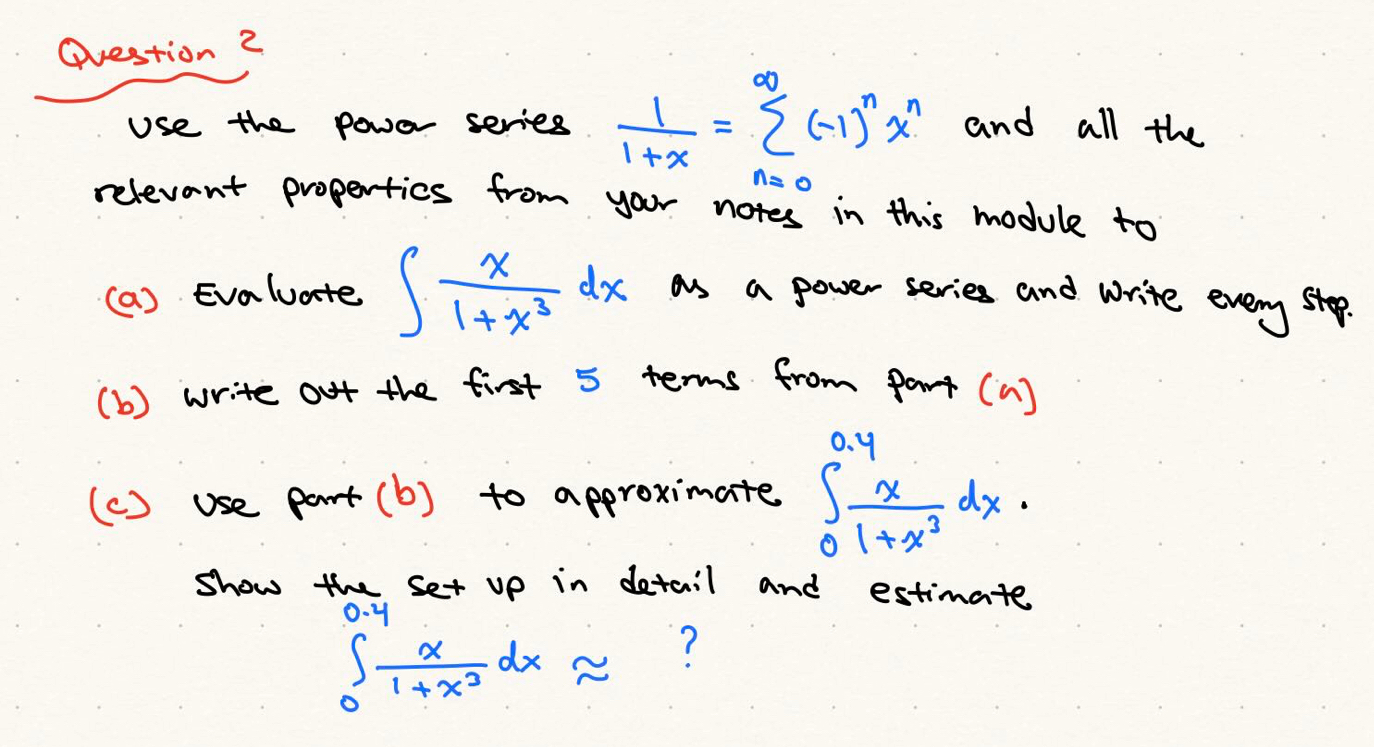 Question 2
Use the power series 1/(1+x) = ∑_{n=0}^{∞} (-1)^n x^n and all the
relevant properties from your notes in this module to
(a) Evaluate ∫ x/(1+x^3) dx as a power series and write every step.
(b) write out the first 5 terms from part (a)
(c) use part (b) to approximate ∫_0^{0.4} x/(1+x^3) dx .
Show the set up in detail and estimate
∫_0^{0.4} x/(1+x^3) dx ≈ ?